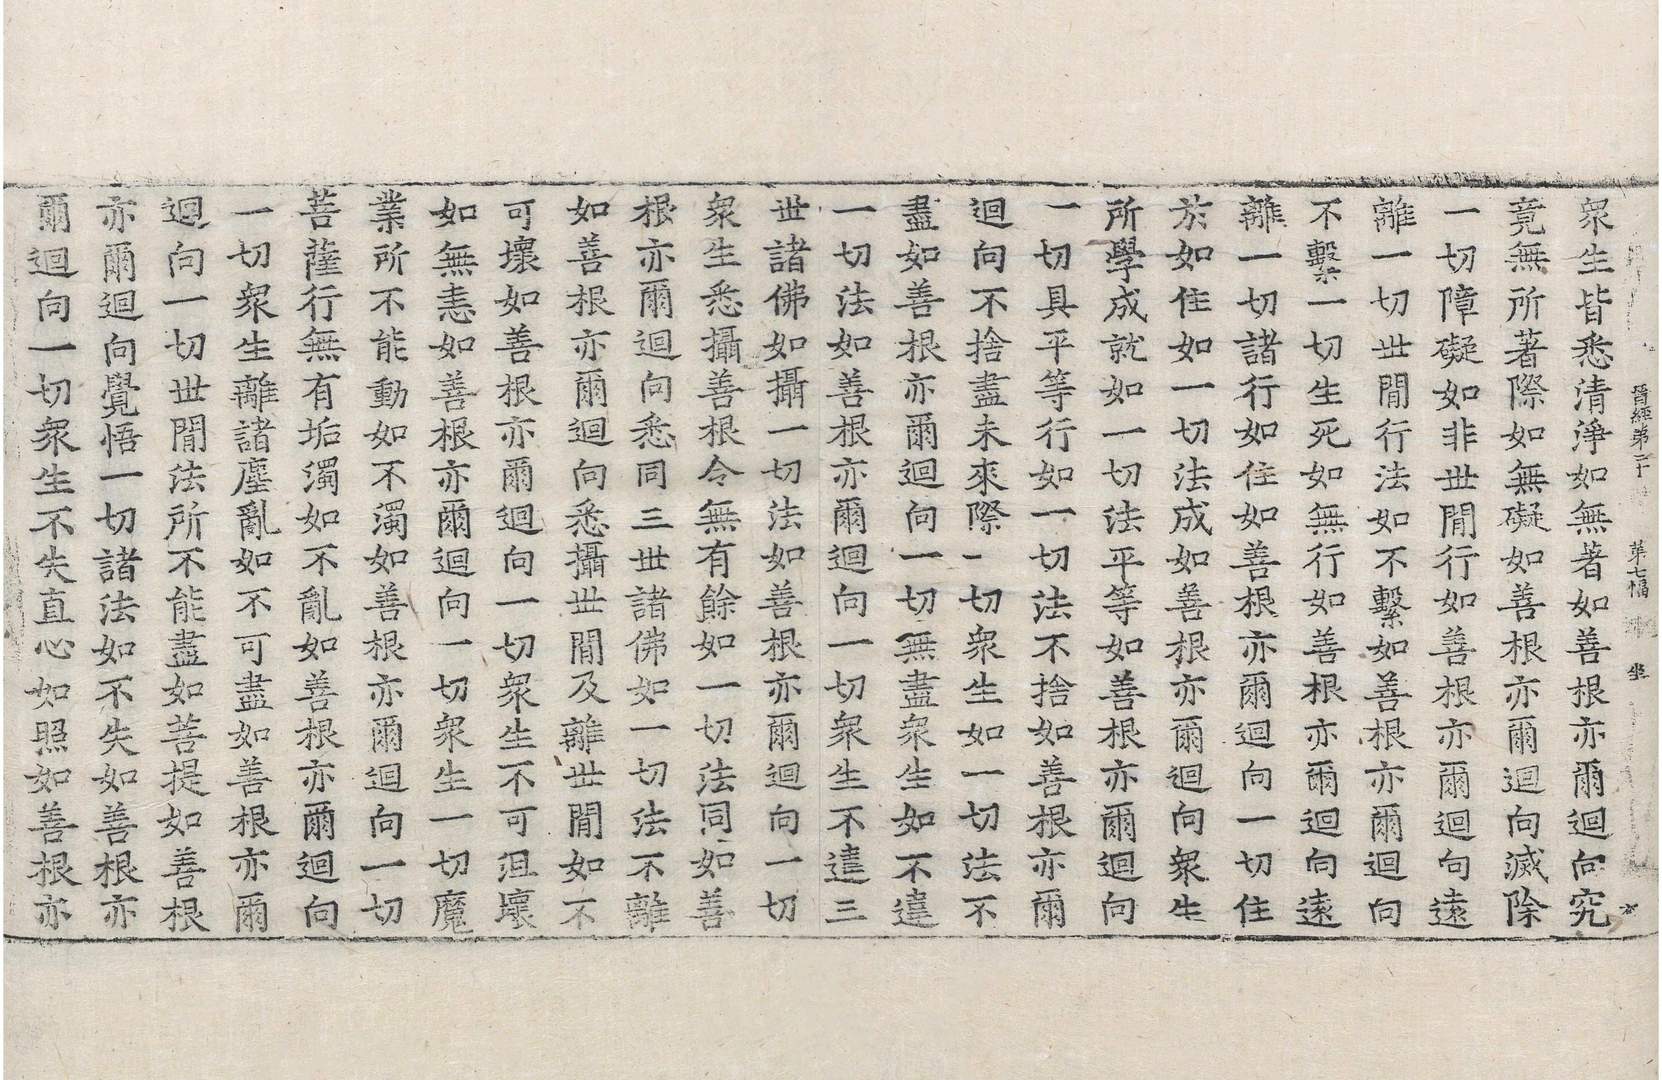 晉經第二十 第七幅 坐
衆生皆悉清淨如無著如善根亦爾迴向究
竟無所著際如無礙如善根亦爾迴向滅除
一切障礙如非世閒行如善根亦爾迴向遠
離一切世閒行法如不繫如善根亦爾迴向
不繫一切生死如無行如善根亦爾迴向遠
離一切諸行如住如善根亦爾迴向一切住
於如住如一切法成如善根亦爾迴向衆生
所學成就如一切法平等如善根亦爾迴向
一切具平等行如一切法不捨如善根亦爾
迴向不捨盡未來際一切衆生如一切法不
盡如善根亦爾迴向一切無盡衆生如不違
一切法如善根亦爾迴向一切衆生不違三
世諸佛如攝一切法如善根亦爾迴向一切
衆生悉攝善根令無有餘如一切法同如善
根亦爾迴向悉同三世諸佛如一切法不離
如善根亦爾迴向悉攝世閒及離世閒如不
可壞如善根亦爾迴向一切衆生不可沮壞
如無恚如善根亦爾迴向一切衆生一切魔
業所不能動如不濁如善根亦爾迴向一切
菩薩行無有垢濁如不亂如善根亦爾迴向
一切衆生離諸塵亂如不可盡如善根亦爾
迴向一切世閒法所不能盡如菩提如善根
亦爾迴向覺悟一切諸法如不失如善根亦
爾迴向一切衆生不失直心如照如善根亦